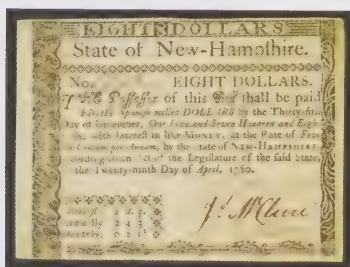 EIGHT DOLLARS
State of New-Hampshire.
No. EIGHT DOLLARS.
THE Possessor of this Bill shall be paid
Eight Spanish milled DOLLARS by the Thirty-first
Day of December, One Thousand Seven Hundred and Eighty
with Interest in like MONEY, at the Rate of Five
per Annum, by the State of NEW-HAMPSHIRE
according to an Act of the Legislature of the said State,
the Twenty-ninth Day of April, 1780.
Interest
Annually
Monthly